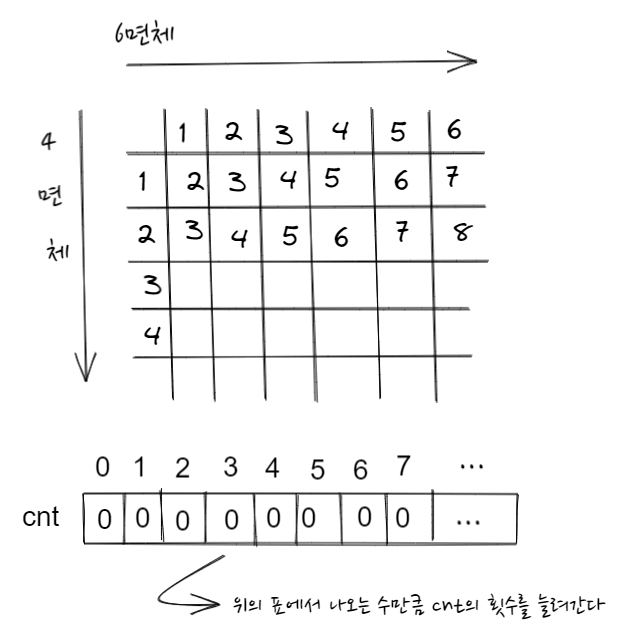 6면체
4면체
1 2 3 4 5 6
1 2 3 4 5 6 7
2 3 4 5 6 7 8
3
4
0 1 2 3 4 5 6 7 ...
cnt 0 0 0 0 0 0 0 0 ...
위의 표에서 나오는 수만큼 cnt의 횟수를 늘려간다